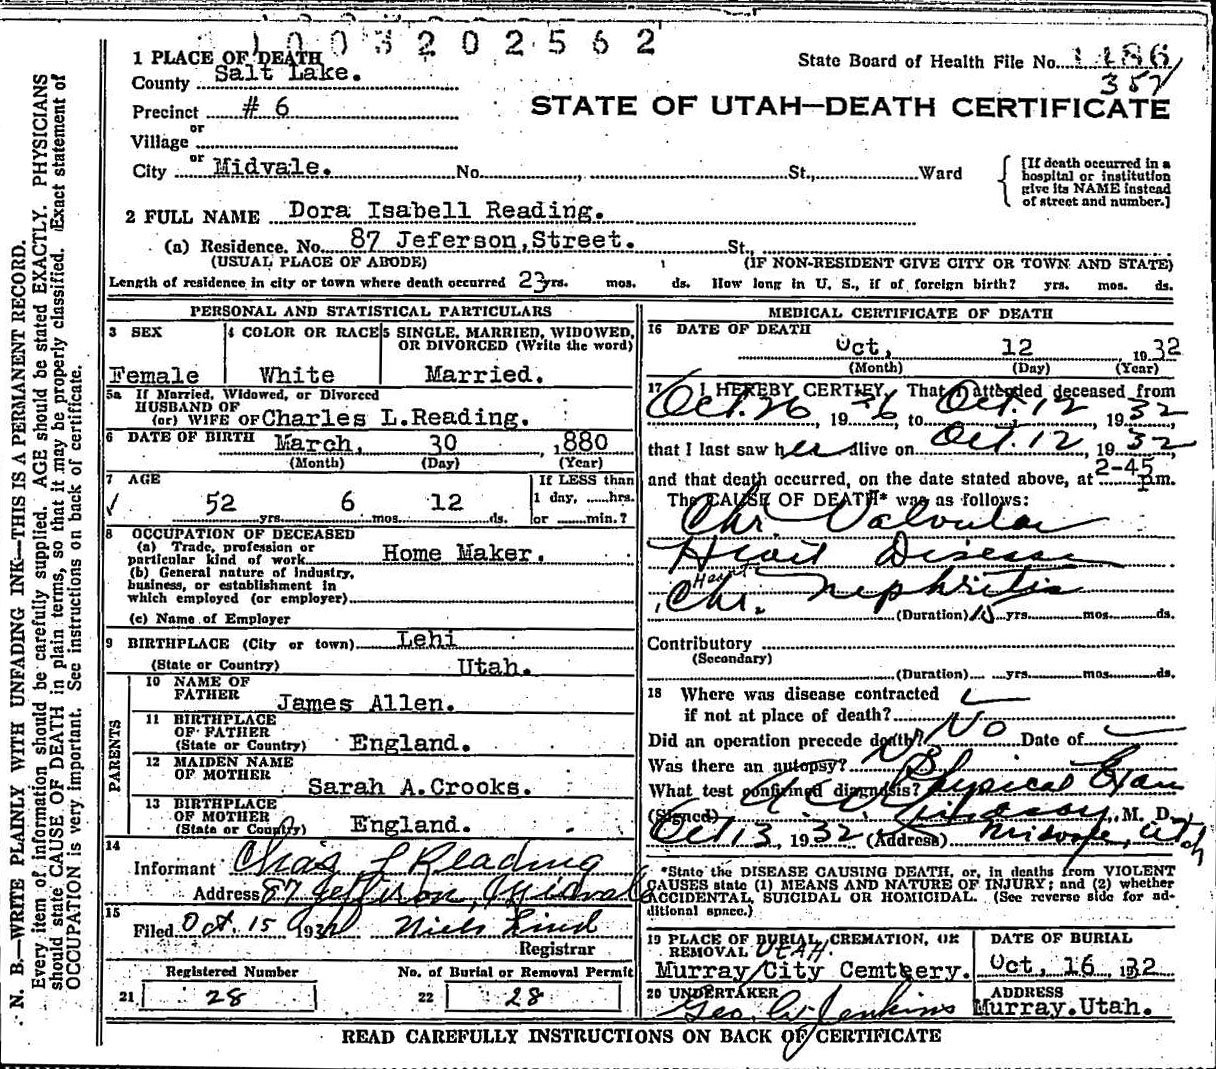 1003202562
1 PLACE OF DEATH
County Salt Lake.
State Board of Health File No. 1186
357
Precinct # 6
STATE OF UTAH—DEATH CERTIFICATE
or
Village
or
City Midvale. No. St., Ward
[If death occurred in a
hospital or institution
give its NAME instead
of street and number.]
2 FULL NAME Dora Isabell Reading.
(a) Residence. No. 87 Jeferson,Street. St.,
(USUAL PLACE OF ABODE) (IF NON-RESIDENT GIVE CITY OR TOWN AND STATE)
Length of residence in city or town where death occurred 23 yrs. mos. ds. How long in U. S., if of foreign birth? yrs. mos. ds.
PERSONAL AND STATISTICAL PARTICULARS
3 SEX
Female
4 COLOR OR RACE
White
5 SINGLE, MARRIED, WIDOWED,
OR DIVORCED (Write the word)
Married.
5a If Married, Widowed, or Divorced
HUSBAND OF
(or) WIFE OF Charles L.Reading.
6 DATE OF BIRTH March, 30 ,1880
(Month) (Day) (Year)
7 AGE
52 yrs. 6 mos. 12 ds.
If LESS than
1 day, ......hrs.
or ......min.?
8 OCCUPATION OF DECEASED
(a) Trade, profession or
particular kind of work Home Maker.
(b) General nature of industry,
business, or establishment in
which employed (or employer)
(c) Name of Employer
9 BIRTHPLACE (City or town) Lehi
(State or Country) Utah.
PARENTS
10 NAME OF
FATHER
James Allen.
11 BIRTHPLACE
OF FATHER
(State or Country) England.
12 MAIDEN NAME
OF MOTHER
Sarah A.Crooks.
13 BIRTHPLACE
OF MOTHER
(State or Country) England.
14
Informant Chas L Reading
Address 87 Jefferson, Midvale
15
Filed Oct. 15 1932 Niels Lind
Registrar
Registered Number
21 28
No. of Burial or Removal Permit
22 28
MEDICAL CERTIFICATE OF DEATH
16 DATE OF DEATH
Oct, 12 , 1932
(Month) (Day) (Year)
17 I HEREBY CERTIFY, That I attended deceased from
Oct. 26, 19 to Oct. 12, 1932
that I last saw her alive on Oct. 12, 1932
and that death occurred, on the date stated above, at 2-45 p.m.
The CAUSE OF DEATH* was as follows:
Chr. Valvular
Heart Disease
Heart
Chr. Nephritis
(Duration) 10 yrs. mos. ds.
Contributory
(Secondary)
(Duration) yrs. mos. ds.
18 Where was disease contracted
if not at place of death?
Did an operation precede death? No Date of
Was there an autopsy? No
What test confirmed diagnosis? Physical Exam
(Signed) , M. D.
Oct 13, 1932 (Address) Midvale, Utah
*State the DISEASE CAUSING DEATH, or, in deaths from VIOLENT
CAUSES state (1) MEANS AND NATURE OF INJURY; and (2) whether
ACCIDENTAL, SUICIDAL OR HOMICIDAL. (See reverse side for ad-
ditional space.)
19 PLACE OF BURIAL, CREMATION, OR
REMOVAL UTAH.
Murray City Cemtery.
DATE OF BURIAL
Oct, 16, 1932
20 UNDERTAKER
Geo. W Jenkins
ADDRESS
Murray.Utah.
READ CAREFULLY INSTRUCTIONS ON BACK OF CERTIFICATE
N. B.—WRITE PLAINLY WITH UNFADING INK—THIS IS A PERMANENT RECORD.
Every item of information should be carefully supplied. AGE should be stated EXACTLY. PHYSICIANS
should state CAUSE OF DEATH in plain terms, so that it may be properly classified. Exact statement of
OCCUPATION is very important. See instructions on back of certificate.